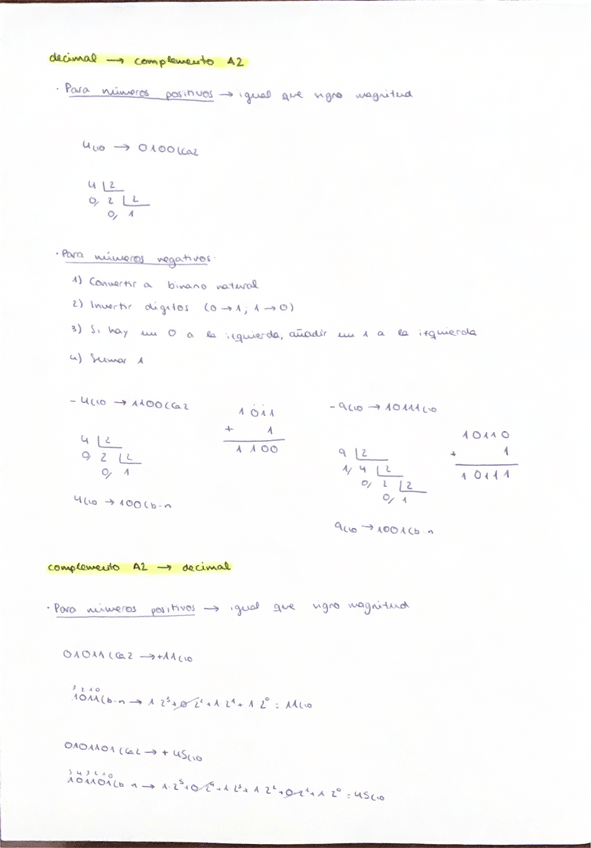 decimal → complemento A2
· Para números positivos → igual que signo magnitud
4(10 → 0100(Ca2
4 |2
0, 2 |2
0, 1
· Para números negativos:
1) Convertir a binario natural
2) Invertir dígitos (0→1; 1→0)
3) Si hay un 0 a la izquierda, añadir un 1 a la izquierda
4) Sumar 1
-4(10 → 1100(Ca2
4 |2
0 2 |2
0, 1
4(10 → 100(b-n
1011
+ 1
1100
-9(10 → 10111(10
9 |2
1, 4 |2
0, 2 |2
0, 1
9(10 → 1001(b-n
10110
+ 1
10111
complemento A2 → decimal
· Para números positivos → igual que signo magnitud
01011(Ca2 → +11(10
3 2 1 0
1011(b-n → 1·2³+0·2²+1·2¹+1·2⁰ = 11(10
0101101(Ca2 → +45(10
5 4 3 2 1 0
101101(b-n → 1·2⁵+0·2⁴+1·2³+1·2²+0·2¹+1·2⁰ = 45(10